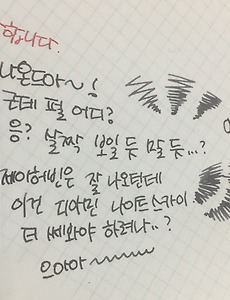 합니다.
나온드아~!
근데 펄 어디?
응? 살짝 보일 듯 말 듯...?
제이허빈은 잘 나오던데
이건 디아민 나이트스카이
더 쎄와야 하려나..?
으아아~~~